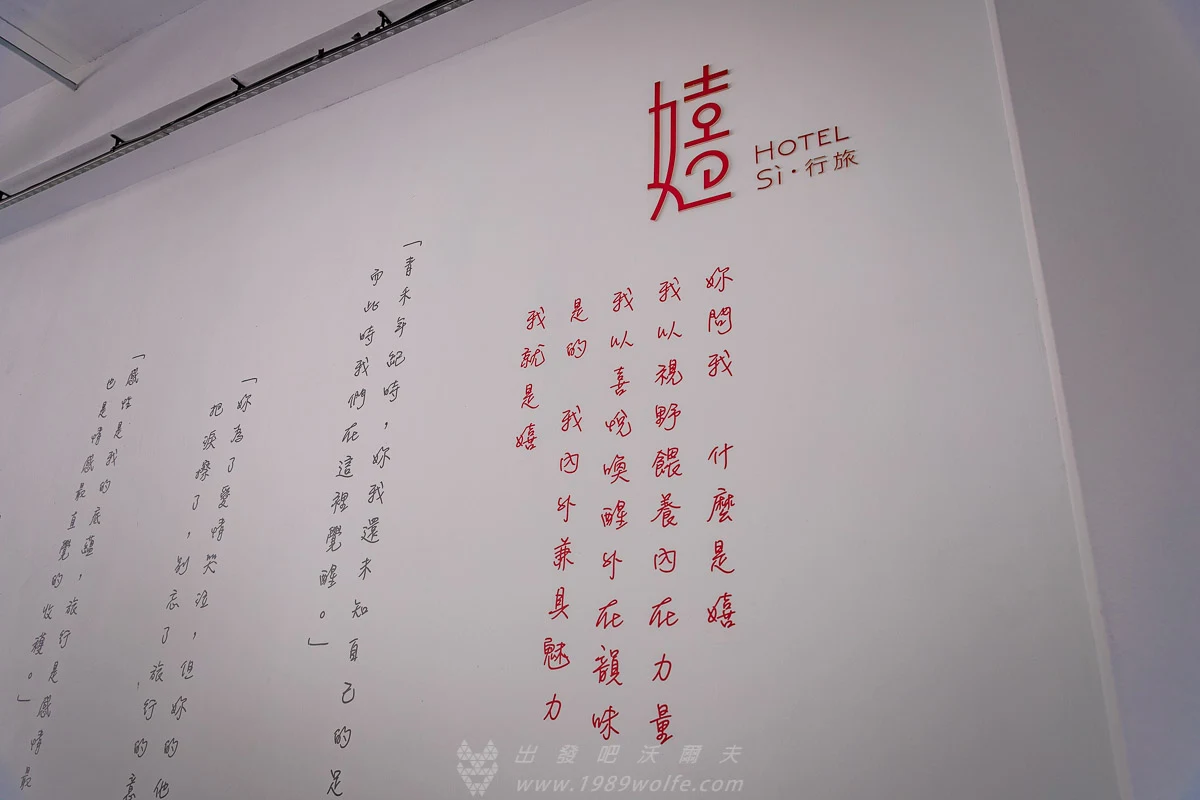 嬉
HOTEL
Sì·行旅
妳問我 什麼是嬉
我以視野餵養內在力量
我以喜悅喚醒外在韻味
是的 我內外兼具魅力
我就是嬉
「青禾年紀時，妳我還未知自己的是
而此時我們在這裡覺醒。」
「妳為了愛情哭泣，但妳的他
把淚擦了，別忘了旅行的意
「感性是我的底蘊，旅行是感情最
也是情感最直覺的收穫。」
出發吧沃爾夫
www.1989wolfe.com